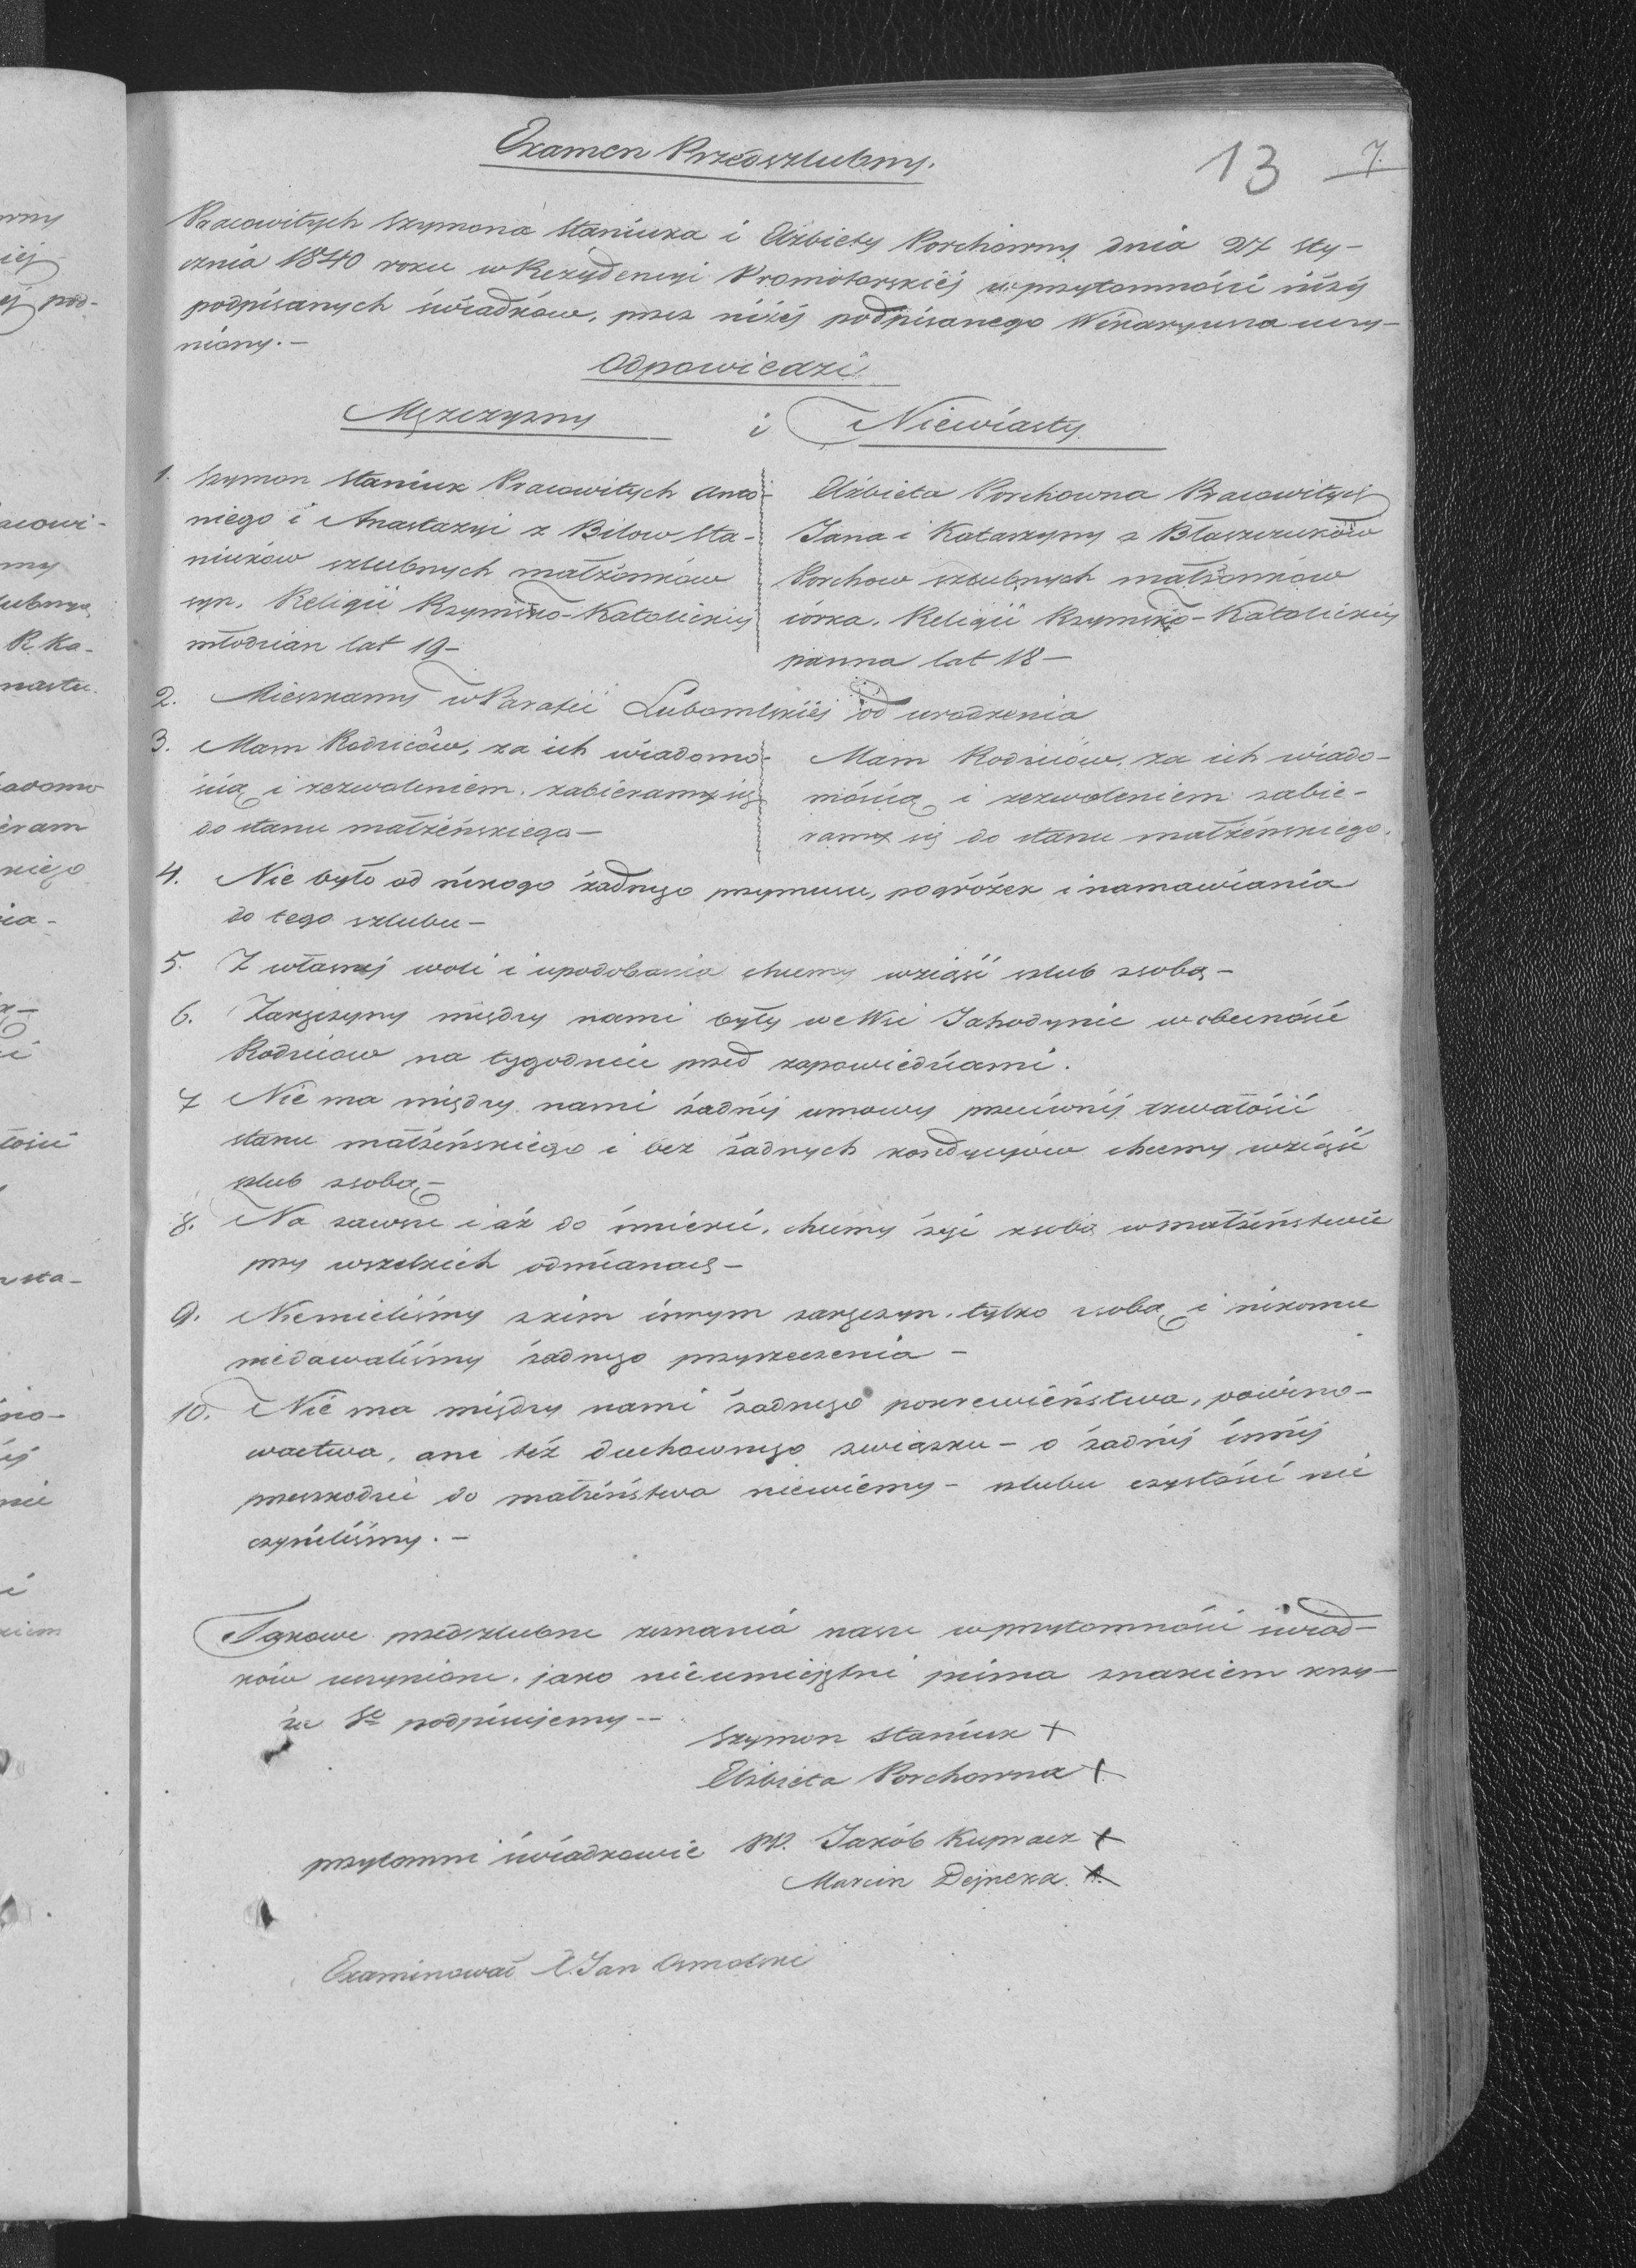 Examen Przedszlubny.
13 7.
Pracowitych Szymona Staniuka i Elżbiety Porchowny dnia 27 Sty-
cznia 1840 roku w Rezydencyi Promotorskiéj w przytomności niżéj
podpisanych świadków, przez niżéj podpisanego Wikaryusza uczy-
niony.—
Odpowiedzi
Męzczyzny i Niewiasty
1. Szymon Staniuk Pracowitych Anto-
niego i Anastazyi z Bilow Sta-
niuków szlubnych małżonków
syn. Religii Rzymsko-Katolickiéj
młodzian lat 19—
Elżbieta Porchowna Pracowitych
Jana i Katarzyny z Błaszczuków
Porchow szlubnych małżonków
córka. Religii Rzymsko-Katolickiéj
panna lat 18—
2. Mieszkamy w Parafii Lubomlskiéj od urodzenia
3. Mam Rodziców, za ich wiadomo-
ścią i zezwoleniem. zabieramy się
do stanu małżeńskiego—
Mam Rodziców, za ich wiado-
mością i zezwoleniem zabie-
ramy się do stanu małżeńskiego.
4. Nie było od nikogo żadnego przymusu, pogróżek i namawiania
do tego szlubu—
5. Z własnéj woli i upodobania chcemy wziąść szlub zsobą—
6. Zaręczyny między nami były we Wsi Jahodynie w obecność
Rodziców na tygodnie przed zapowiedziami.
7 Nie ma między nami żadnéj umowy przeciwnéj trwałości
stanu małżeńskiego i bez żadnych kondycyjów chcemy wziąść
szlub zsobą—
8. Na zawsze i aż do śmierci, chcemy żyć zsobą w małżeństwie
przy wszelkich odmianach—
9. Niemieliśmy zkim innym zaręczyn. tylko zsobą i nikomu
niedawaliśmy żadnego przyrzeczenia—
10. Nie ma między nami żadnego pokrewieństwa, powino-
wactwa, ani też duchownego związku— o żadnéj innéj
przeszkodzie do małżeństwa niewiemy— szlubu czystości nie
czyniliśmy.—
Takowe przedszlubne zeznania nasze w przytomności świad-
ków uczynione. jako nieumiejętni pisma znakiem krzy-
ża Sgo podpisujemy--
Szymon Staniuk +
Elżbieta Porchowna +
przytomni świadkowie PP. Jakób Kupracz +
Marcin Dejneka. +
Examinował X. Jan Osmolski